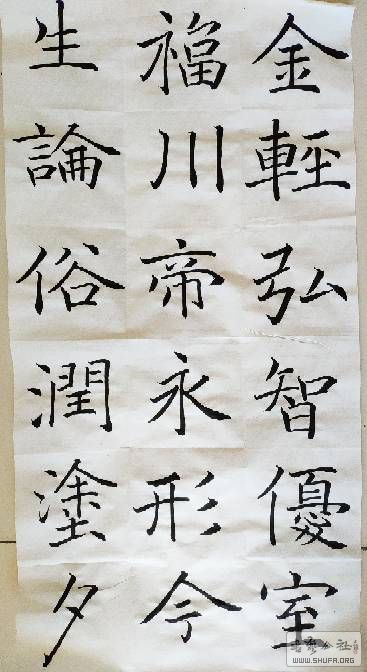 金輕弘智優室
福川帝永形今
生論俗潤塗夕
WWW.SHUFA.ORG